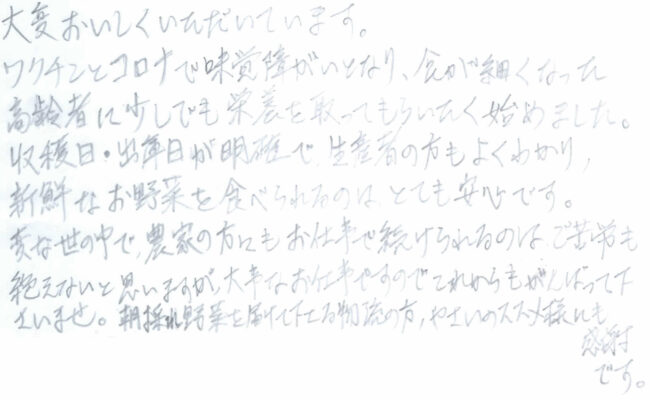 大変おいしくいただいています。
ワクチンとコロナで味覚障がいとなり、食が細くなった
高齢者に少しでも栄養を取ってもらいたく始めました。
収穫日・出荷日が明確で、生産者の方もよくわかり、
新鮮なお野菜を食べられるのは、とても安心です。
変な世の中で、農家の方にもお仕事で続けられるのは、ご苦労も
絶えないと思いますが、大事なお仕事ですのでこれからもがんばって下
さいませ。朝採れ野菜を届けて下さる物流の方、やさいのススメ様にも
感謝
です。